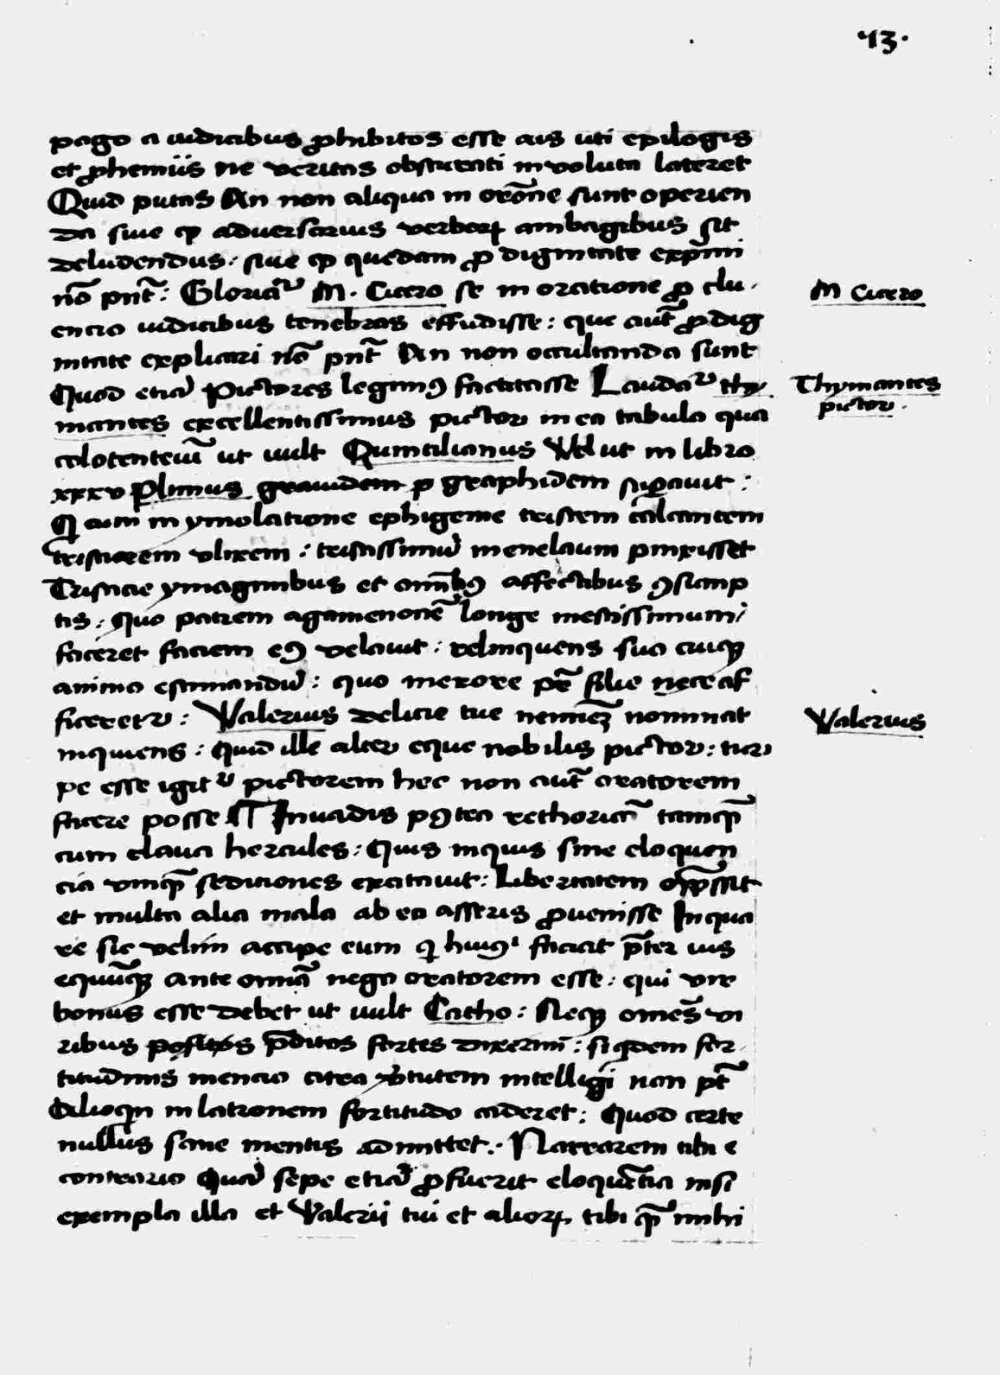 13.
pago a iudicibus ꝓhibitos esse ais uti epilogis
et ꝓhemiis ne veritas obscurati involuta lateret
Quid putas An non aliqua in orōne sunt operien
da siue ꝙ adversarius verborꝝ ambagibus sit
deludendus : siue ꝙ quedam ꝓ dignitate exprimi
nō pn̄t : Gloriat᷑ M. Cicero se in oratione ꝓ clu
M Cicero
encio iudicibus tenebras effudisse : que aut̄ ꝓ dig
nitate explicari nō pn̄t An non occultanda sunt
Quod etiā Pictores legimꝰ factitasse Laudat᷑ thy
Thymantes
pictor.
mantes excellentissimus pictor in ea tabula qua
colotenteiū ut uult Quintilianus Vel ut in libro
xxxv Plinius grauidem ꝑ graphidem suꝑauit :
Q cum in ymolatione ephigenie tristem calcantem
tristiorem vlixem : tristissimū menelaum pinxisset
Tristicie ymaginibus et omībꝰ affectibus ꝯsump
tis : Quo patrem agamenonē longe mestissimum
faceret faciem eiꝰ velauit : relinquens sua cuiqꝫ
animo estimandū : quo merore pr̄ filie nece af
ficeretur : Valerius delicie tue neminē nominat
Valerius
inquiens : Quid ille alter eque nobilis pictor : tur
pe esse igit᷑ pictorem hec non aut̄ oratorem
facere posse ¶ Inuadis pꝰtea rethoricā tamqꝫ̄
cum claua hercules : Quis inquis sine eloquen
cia vmqꝫ̄ seditiones excitauit : Libertatem opp̄ssit
et multa alia mala ab ea asseris ꝓuenisse In qua
re sic velim accipe eum qi huiꝰi faciat p̄ter ius
equūqꝫ ante omīa nego oratorem esse : qui vir
bonus esse debet ut uult Catho : Neqꝫ omēs vi
ribus positos p̄ditos fortes dixerim : siqdem for
titudinis mencio citra v̓tutem intelligi non pt̄
Alioqn in latronem fortitudo caderet : Quod certe
nullus sane mentis admittet : Narrarem tibi e
contrario Quā sepe etiā ꝓfuerit eloquētia nisi
exempla illa et Valerii tui et aliorꝝ tibi qꝫ̄ mihi